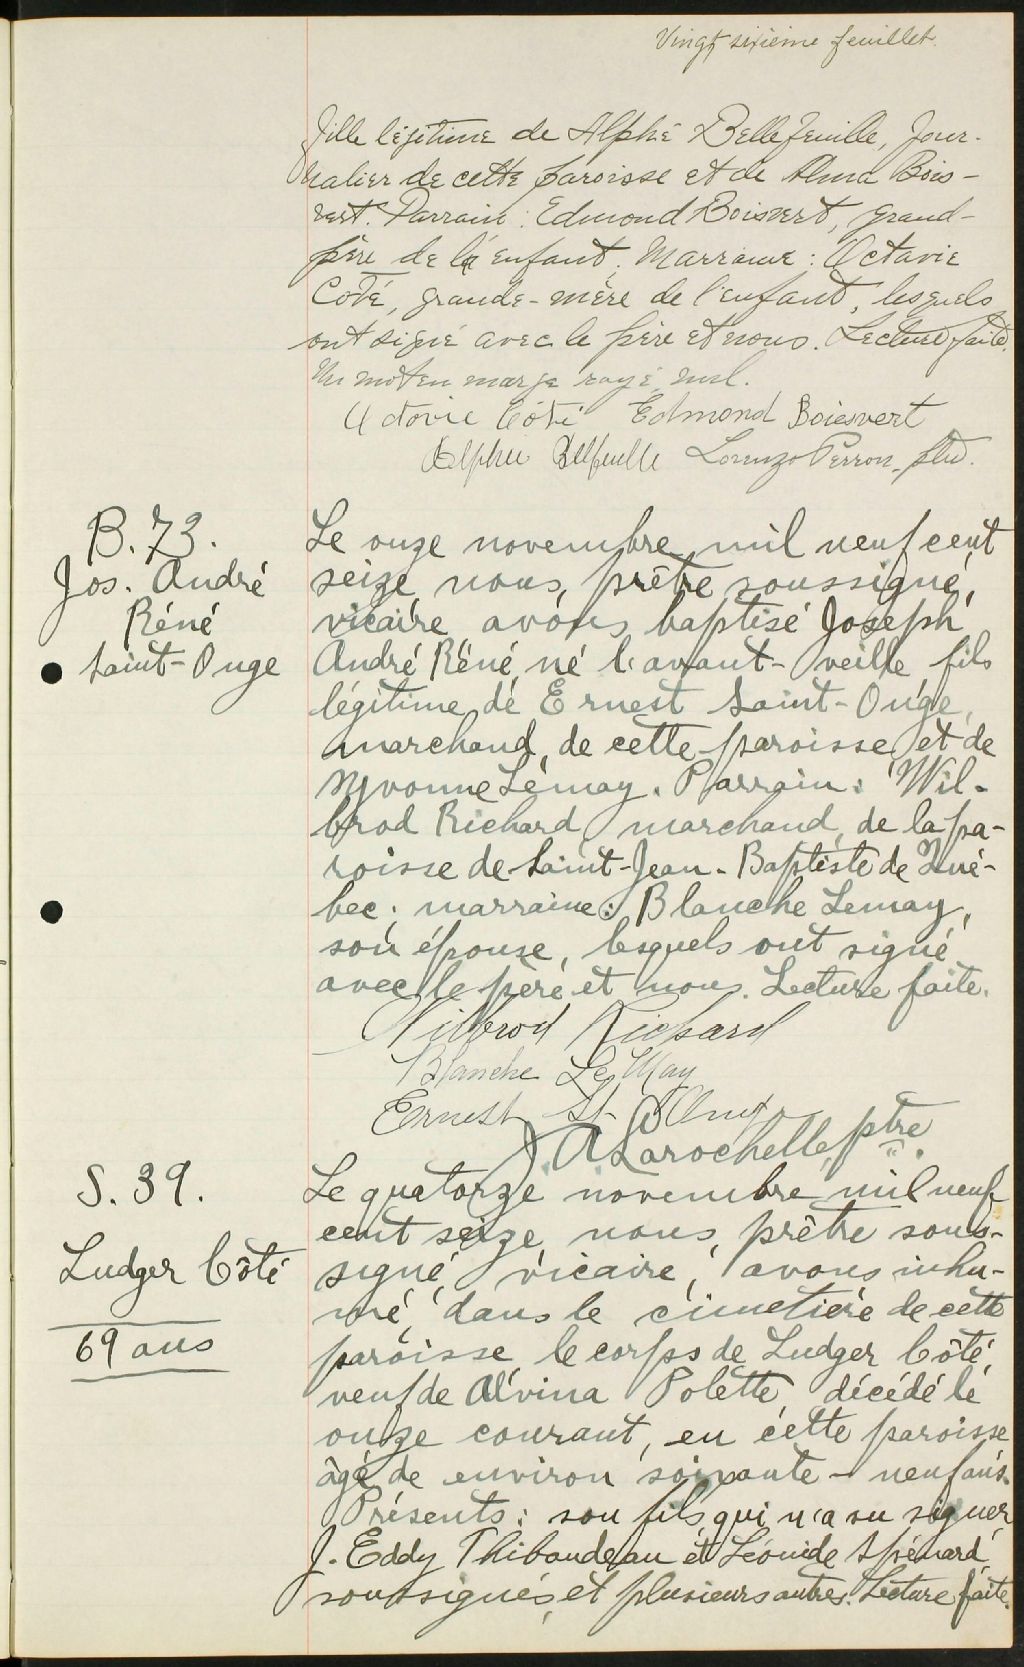 Vingt sixième feuillet.
fille légitime de Alphé Bellefeuille, jour-
nalier de cette paroisse et de Alma Bois-
vert. Parrain : Edmond Boisvert, grand-
père de l'enfant. Marraine : Octavie
Côté, grande-mère de l'enfant, lesquels
ont signé avec le père et nous. Lecture faite.
Un mot en marge rayé nul.
Octavie Côté Edmond Boiesvert
Alphée Bellfeuille Lorenzo Perron, ptre.
B. 73.
Jos. André
Réné
Saint-Onge
Le onze novembre mil neuf cent
seize, nous, prêtre soussigné,
vicaire avons baptisé Joseph
André Réné, né l'avant-veille fils
légitime de Ernest Saint-Onge,
marchand, de cette paroisse, et de
Yvonne Lemay. Parrain : Wil-
brod Richard, marchand, de la pa-
roisse de Saint-Jean-Baptiste de Qué-
bec ; marraine : Blanche Lemay,
son épouse, lesquels ont signé
avec le père et nous. Lecture faite.
Wilbrod Richard
Blanche Le May
Ernest St-Onge
J. A Larochelle, ptre.
S. 39.
Ludger Côté
69 ans
Le quatorze novembre mil neuf
cent seize, nous, prêtre sous-
signé, vicaire, avons inhu-
mé, dans le cimetière de cette
paroisse, le corps de Ludger Côté,
veuf de Alvina Polette, décédé le
onze courant, en cette paroisse
âgé de environ soixante-neuf ans.
Présents : son fils qui n'a su signer,
J. Eddy Thibaudeau et Léonide Spénard,
soussignés, et plusieurs autres. Lecture faite.